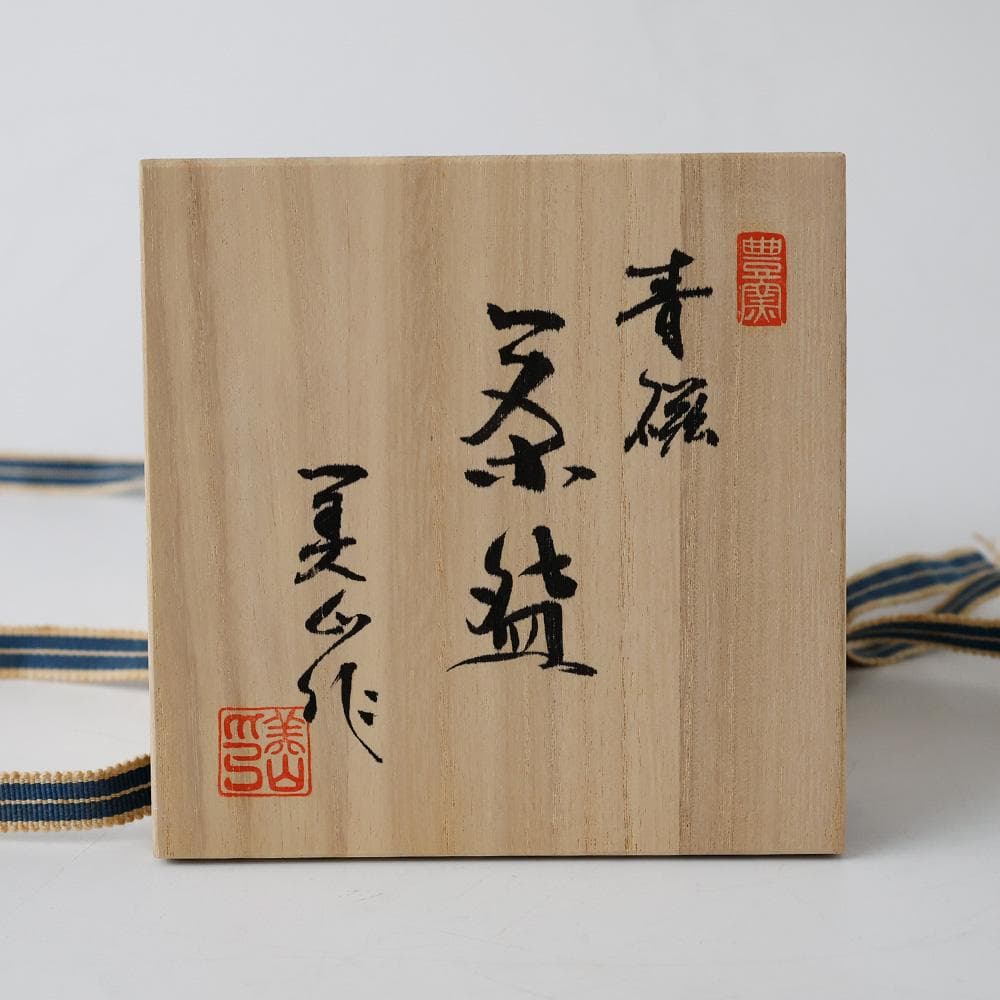 豊窯
青磁
茶盌
美山作
美山印